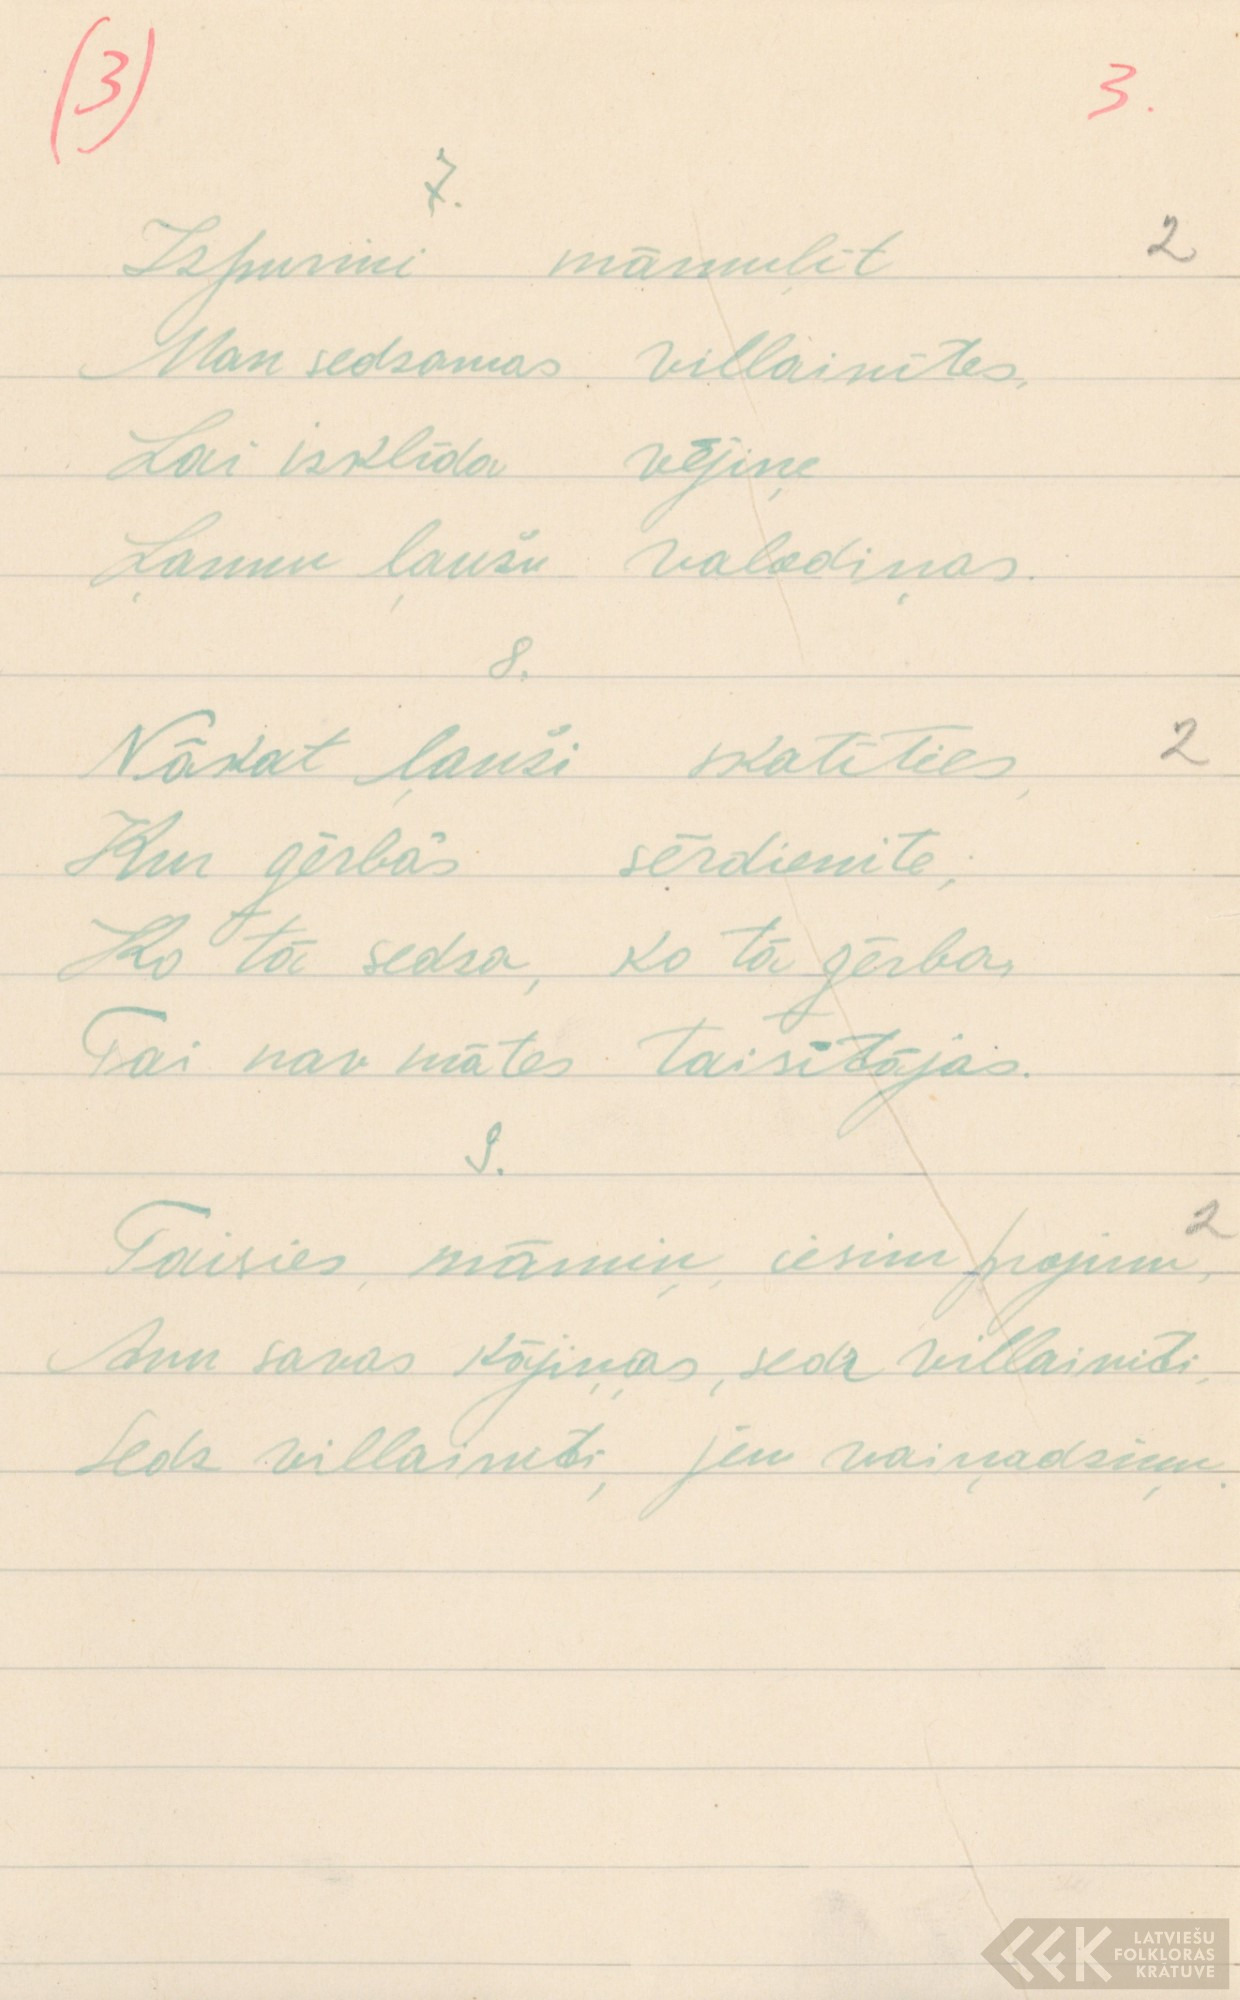 (3) 3.
7.
Izpurini māmuļīt 2
Man sedzamas villainītes,
Lai izklīda vējiņe
Ļaunu ļaužu valodiņas.
8.
Nākat ļauži skatīties, 2
Kur gērbās sērdienite,
Ko tā sedza, ko tā gērba,
Tai nav mātes taisītājas.
9.
Taisies, māmiņ, iesim projām, 2
Aun savas kājiņas, sedz villainīti,
Sedz villainīti, jēm vaiņadziņu.
LATVIEŠU
FOLKLORAS
KRĀTUVE